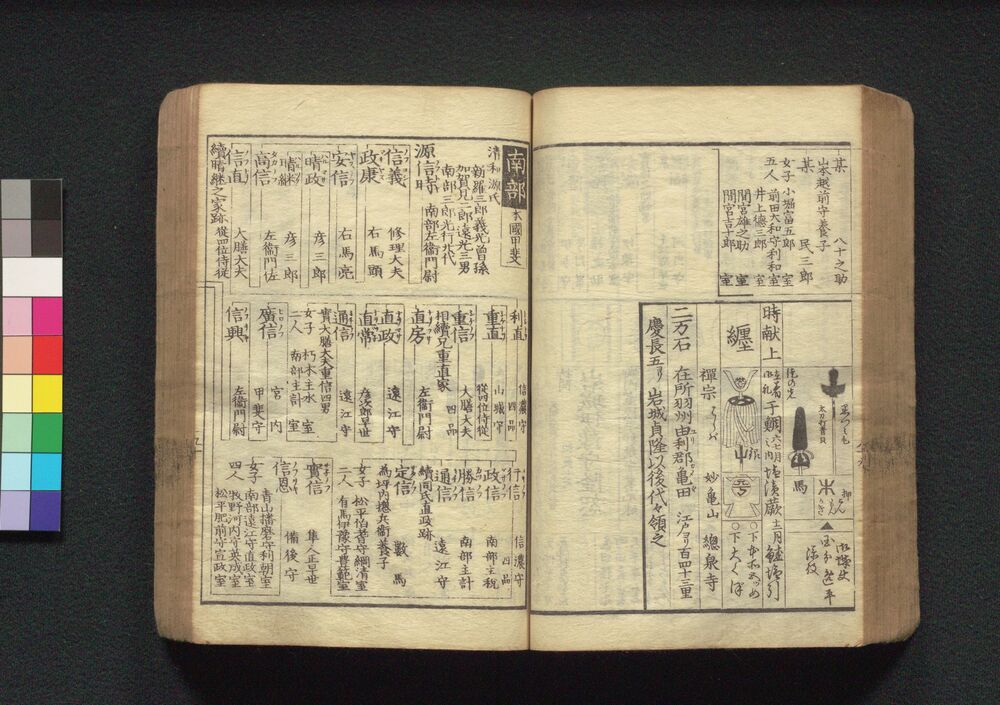 某 八十之助
山本越前守養子
某 民三郎
女子 五人
小堀富五郎 室
前田大和守利和 室
井上德三郎 室
間宮雄之助 室
間宮吉十郎 室
馬
押
時献上
在着 干鯛
六七月之内 塩漬蕨
十二月 鮭塩引
纏
山
禅宗
妙亀山 總泉寺
二万石 在所羽州由利郡亀田 江戸ヨリ百四十三里
慶長五ヨリ岩城貞隆以後代々領之
南部 本國甲斐
清和源氏
新羅三郎義光曽孫
加賀見二郎遠光三男
南部三郎光行九代
源信時 南部左衛門尉
信義 修理大夫
政康 右馬頭
安信 右馬亮
晴政 彦三郎
晴継 彦三郎
高信 左衛門佐
信直 大膳大夫
續晴継之家跡 從四位侍従
利直 信濃守 四品
重直 山城守 從四位侍従
重信 大膳大夫 四品
相續兄重直家
直房 左衛門尉
直政 遠江守
直常 彦次郎早世
通信 遠江守
實大膳大夫重信四男
女子 二人
朽木主水 室
南部主計 室
廣信 宮内
甲斐守
信興 左衛門尉
行信 信濃守 四品
政信 南部主税
勝信 南部主計
通信 遠江守
續同氏直政跡
定信 數馬
為坪内惣兵衛養子
女子 二人
松平伯耆守綱清室
有馬伊豫守豊範室
實信 隼人正早世
信恩 備後守
女子 四人
青山播磨守利朝室
南部遠江守直政室
牧野河内守英成室
松平肥前守宣政室